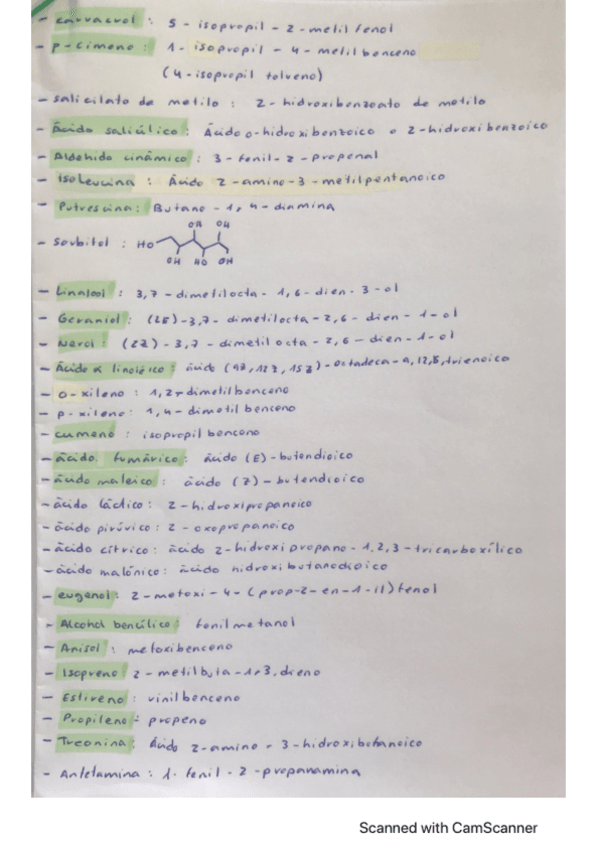 - carvacrol : 5 - isopropil - 2 - metil fenol
- p-cimeno : 1 - isopropil - 4 - metil benceno
(4 - isopropil tolueno)
- salicilato de metilo : 2 - hidroxibenzoato de metilo
- Ácido salicílico : Ácido o-hidroxibenzoico o 2-hidroxibenzoico
- Aldehido cinámico : 3 - fenil - 2 - propenal
- Isoleucina : Ácido 2-amino-3-metilpentanoico
- Putrescina : Butano - 1, 4 - diamina
OH OH
- Sorbitol : HO
OH HO OH
- Linalool : 3,7 - dimetilocta - 1,6 - dien - 3 - ol
- Geraniol : (2E) - 3,7 - dimetilocta - 2,6 - dien - 1 - ol
- Nerol : (2Z) - 3,7 - dimetilocta - 2,6 - dien - 1 - ol
- Ácido α linolénico : ácido (9Z, 12Z, 15Z) - octadeca - 9, 12, 15, trienoico
- o - xileno : 1,2 - dimetilbenceno
- p - xileno : 1,4 - dimetil benceno
- cumeno : isopropil benceno
- ácido fumárico : ácido (E) - butendioico
- ácido maleico : ácido (Z) - butendioico
- ácido láctico : 2 - hidroxipropanoico
- ácido pirúvico : 2 - oxopropanoico
- ácido cítrico : ácido 2-hidroxi propano - 1,2,3 - tricarboxílico
- ácido malónico : ácido hidroxibutanodioico
- eugenol : 2 - metoxi - 4 - (prop-2-en-1-il) fenol
- Alcohol bencílico : fenil metanol
- Anisol : metoxibenceno
- Isopreno 2 - metilbuta - 1,3, dieno
- Estireno : vinilbenceno
- Propileno : propeno
- Treonina : Ácido 2-amino - 3-hidroxibutanoico
- Anfetamina : 1 - fenil - 2 - propanamina
Scanned with CamScanner